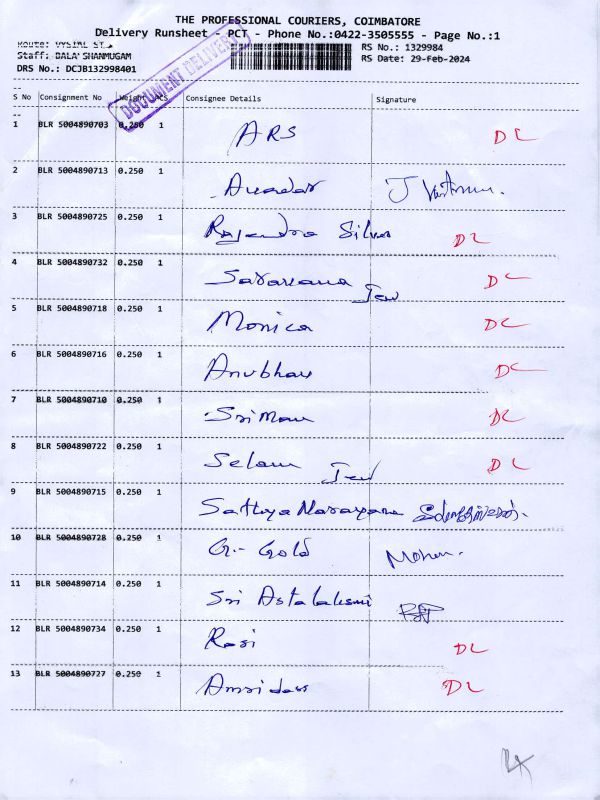 THE PROFESSIONAL COURIERS, COIMBATORE
Delivery Runsheet - PCT - Phone No.:0422-3505555 - Page No.:1
Route: VYSIAL ST
Staff: BALA SHANMUGAM
RS No.: 1329984
DRS No.: DCJB132998401
RS Date: 29-Feb-2024
DOCUMENT DELIVERY
S No Consignment No Weight PCS Consignee Details Signature
1 BLR 5004890703 0.250 1 ARS DL
2 BLR 5004890713 0.250 1
3 BLR 5004890725 0.250 1 Rajendra Silver DL
4 BLR 5004890732 0.250 1 Saravana Jew DL
5 BLR 5004890718 0.250 1 Monica DL
6 BLR 5004890716 0.250 1 Anubhav DL
7 BLR 5004890710 0.250 1 Sriman DL
8 BLR 5004890722 0.250 1 Selam Jew DL
9 BLR 5004890715 0.250 1 Sathya Narayana
10 BLR 5004890728 0.250 1 G.- Gold
11 BLR 5004890714 0.250 1 Sri Astalakshmi
12 BLR 5004890734 0.250 1 Rasi DL
13 BLR 5004890727 0.250 1 Amridass DL